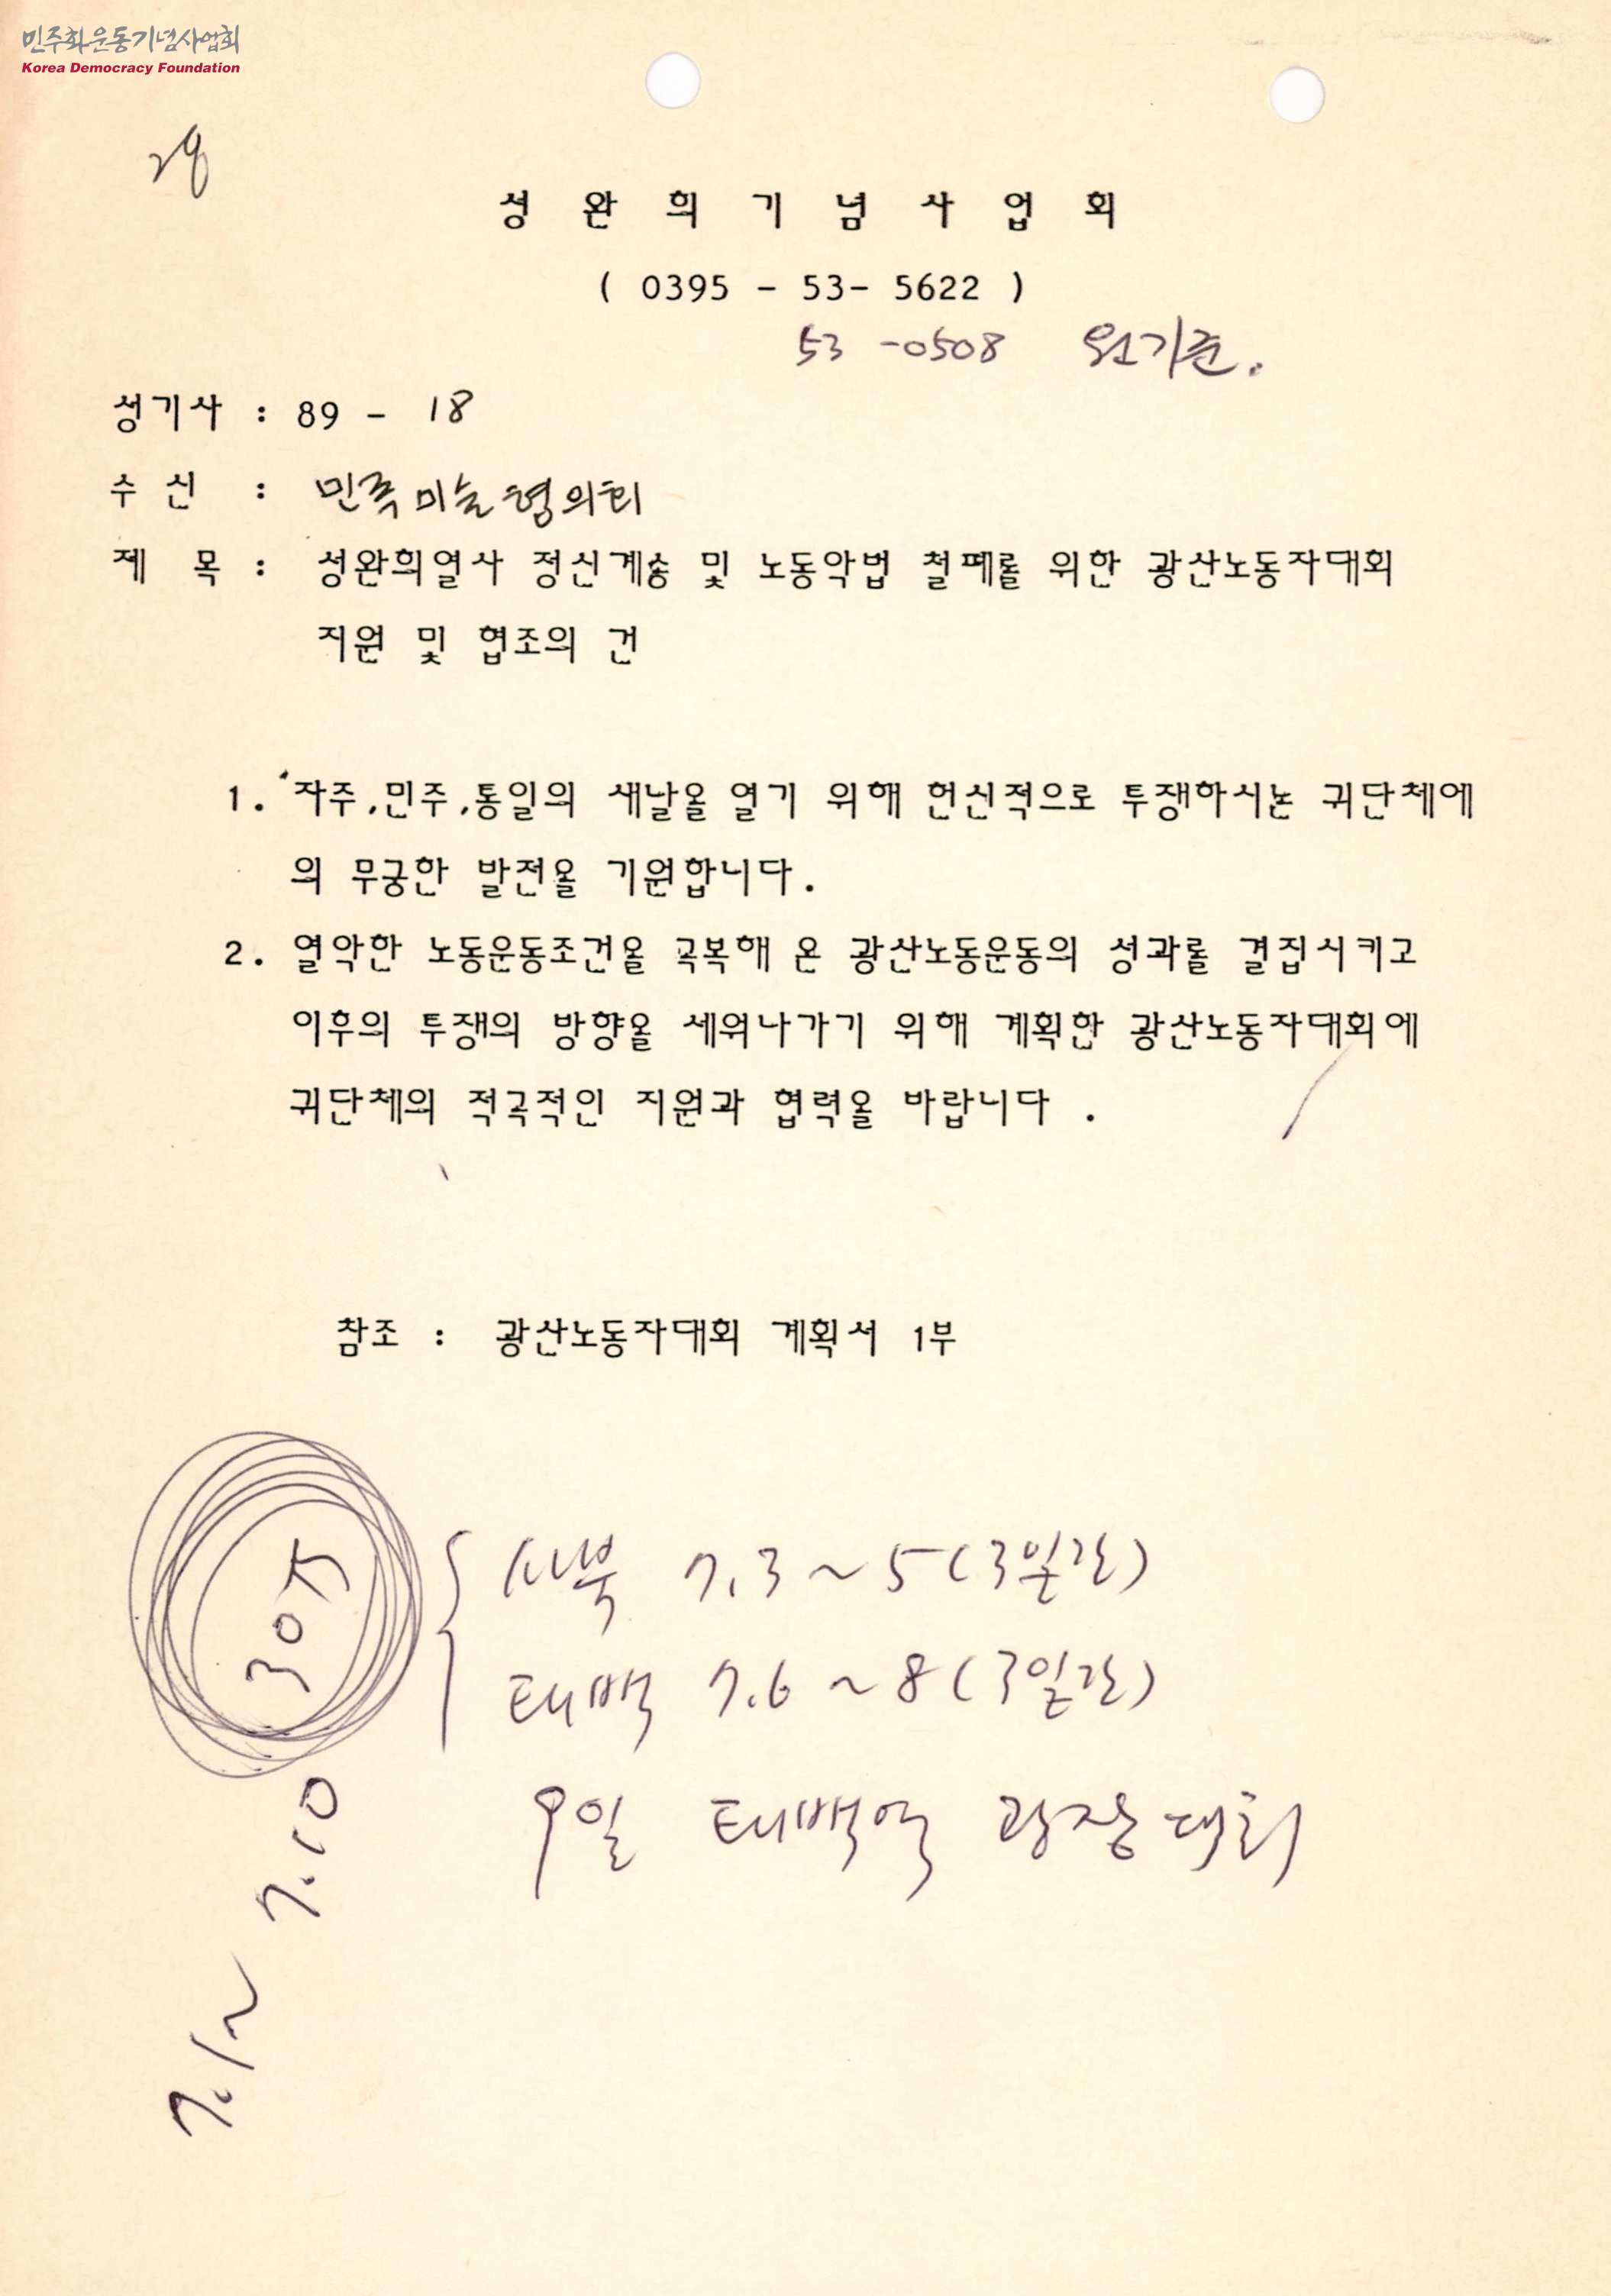 민주화운동기념사업회
Korea Democracy Foundation
29
성 완 희 기 념 사 업 회
( 0395 - 53- 5622 )
53 -0508 원기준.
성기사 : 89 - 18
수 신 : 민족미술협의회
제 목 : 성완희열사 정신계승 및 노동악법 철폐를 위한 광산노동자대회
지원 및 협조의 건
1. 자주,민주,통일의 새날을 열기 위해 헌신적으로 투쟁하시는 귀단체에
의 무궁한 발전을 기원합니다.
2. 열악한 노동운동조건을 극복해 온 광산노동운동의 성과를 결집시키고
이후의 투쟁의 방향을 세워나가기 위해 계획한 광산노동자대회에
귀단체의 적극적인 지원과 협력을 바랍니다 .
참조 : 광산노동자대회 계획서 1부
30
사북 7.3 ~ 5 (3일간)
태백 7.6 ~ 8 (3일간)
9일 태백역 광장대회
7.1 ~ 7.10